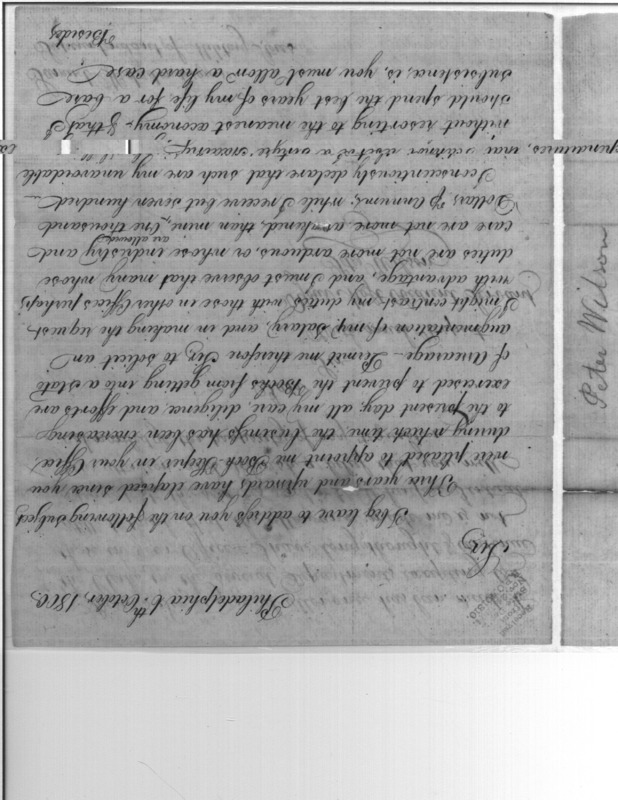 Philadelphia 6th October, 1800.
Sir
I beg leave to address you on the following subject
Three years and upwards have elapsed since you
were pleased to appoint me Book-Keeper in your Office,
during which time, the business has been encreasing
to the present day, all my care, diligence, and efforts are
exercised to prevent the Books from getting into a state
of Arrearage — Permit me therefore Sir, to solicit an
augmentation of my Salary, and in making the request,
I might contrast my duties with those in other Offices perhaps
with advantage, and I must observe that many whose
duties are not more arduous, or, whose industry and
care are not more, are allowed than, mine, One thousand
Dollars, p Annum, while I receive but seven hundred —
I conscientiously declare that such are my unavoidable
expenditures, that
without resorting to the meanest economy, & that I
should spend the best years of my life for a base
subsistence, is, you must allow a hard case
Besides
Peter Wilson